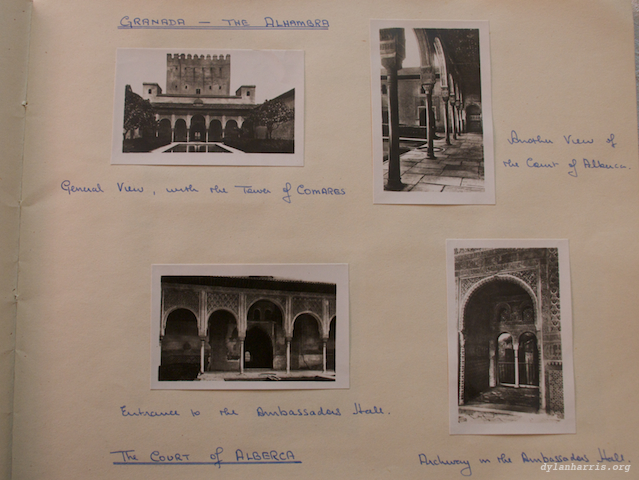 GRANADA — THE ALHAMBRA
General View, with the Tower of COMARES
Another View of
the Court of Alberca.
Entrance to the Ambassadors Hall.
THE COURT OF ALBERCA
Archway in the Ambassadors Hall.
dylanharris.org